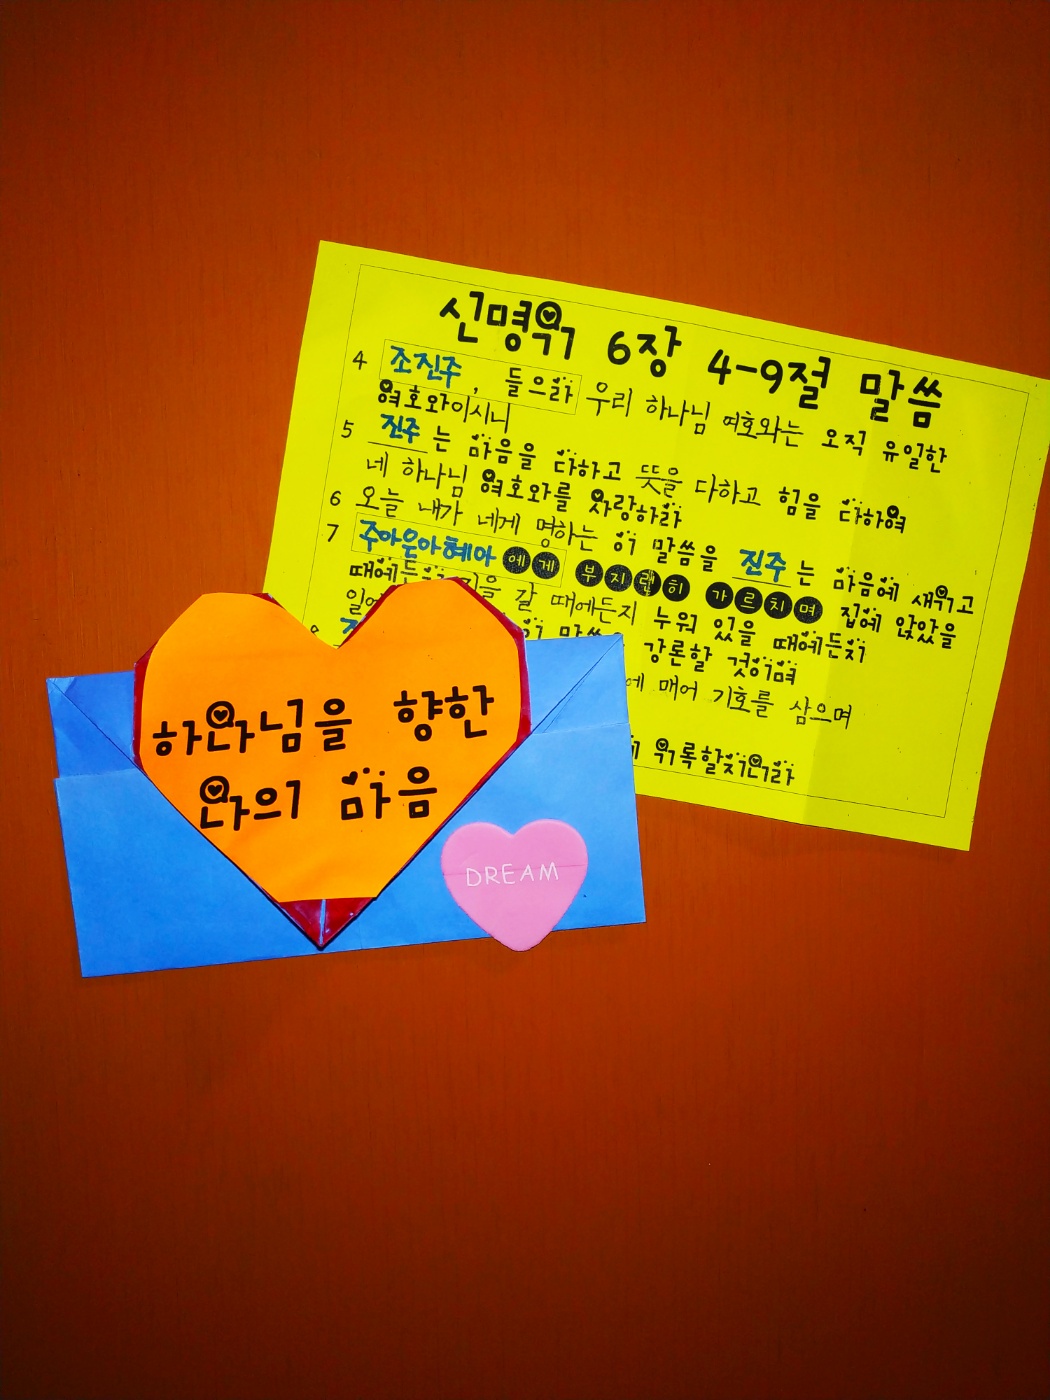 신명기 6장 4-9절 말씀
4 조진주, 들으라 우리 하나님 여호와는 오직 유일한
여호와이시니
5 진주는 마음을 다하고 뜻을 다하고 힘을 다하여
네 하나님 여호와를 사랑하라
6 오늘 내가 네게 명하는 이 말씀을 진주는 마음에 새기고
7 주아은아혜아에게 부지런히 가르치며 집에 앉았을
때에든지 길을 갈 때에든지 누워 있을 때에든지
말씀 강론할 것이며
8 에 매어 기호를 삼으며
기록할지니라
하나님을 향한
나의 마음
DREAM